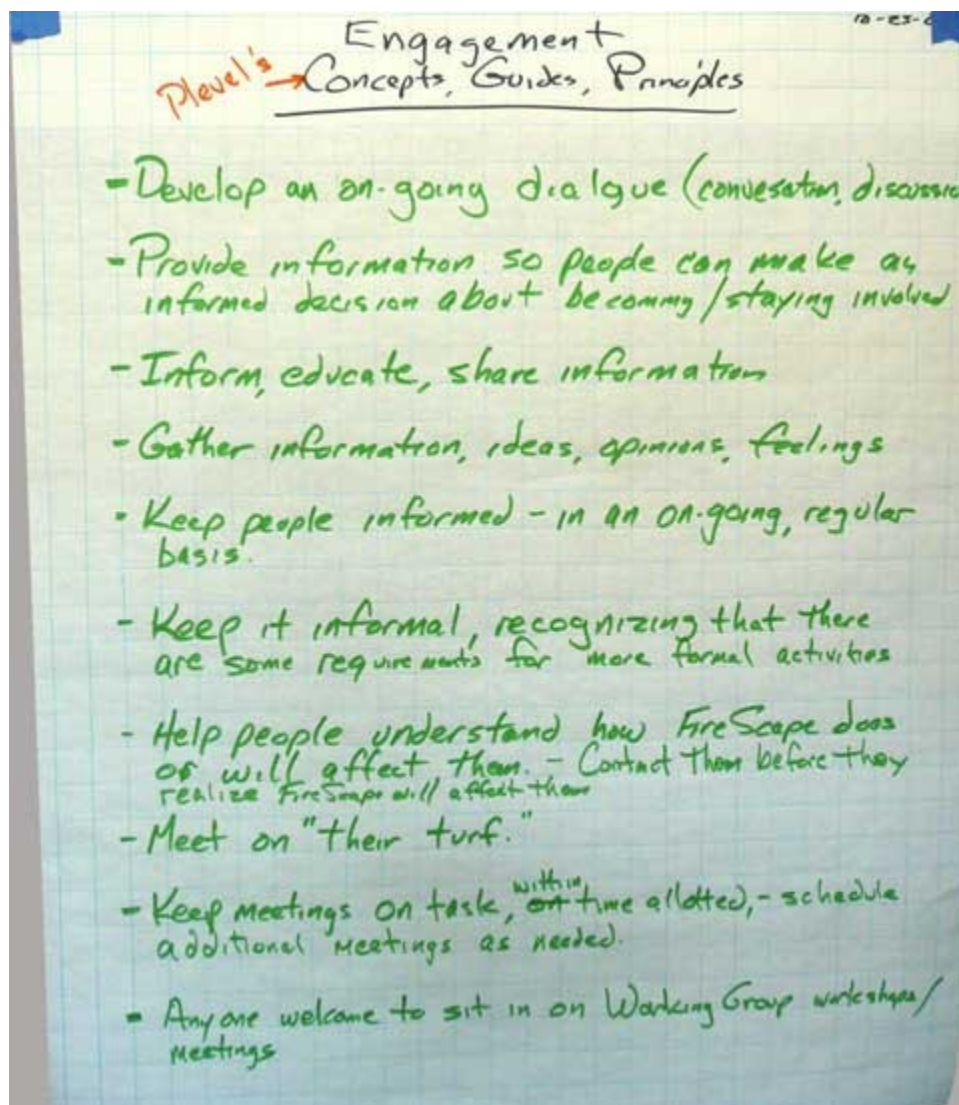 10-23-0
Engagement
Plevel's → Concepts, Guides, Principles
- Develop an on-going dialgue (convesation, discussio
- Provide information so people can make an
informed decision about becommg/staying involved
- Inform, educate, share information
- Gather information, ideas, opinions, feelings
- Keep people informed - in an on-going, regular
basis.
- Keep it informal, recognizing that there
are some requirements for more formal activities
- Help people understand how FireScape does
or will affect them. - Contact them before they
realize FireScape will affect them
- Meet on "their turf."
- Keep meetings on task, within time allotted, - schedule
additional meetings as needed.
- Anyone welcome to sit in on Working Group workshops/
meetings